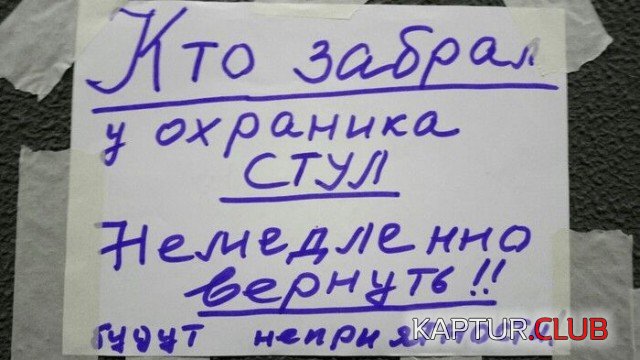 Кто забрал
у охраника
СТУЛ
Немедленно
вернуть!!
будут неприятности
KAPTUR.CLUB